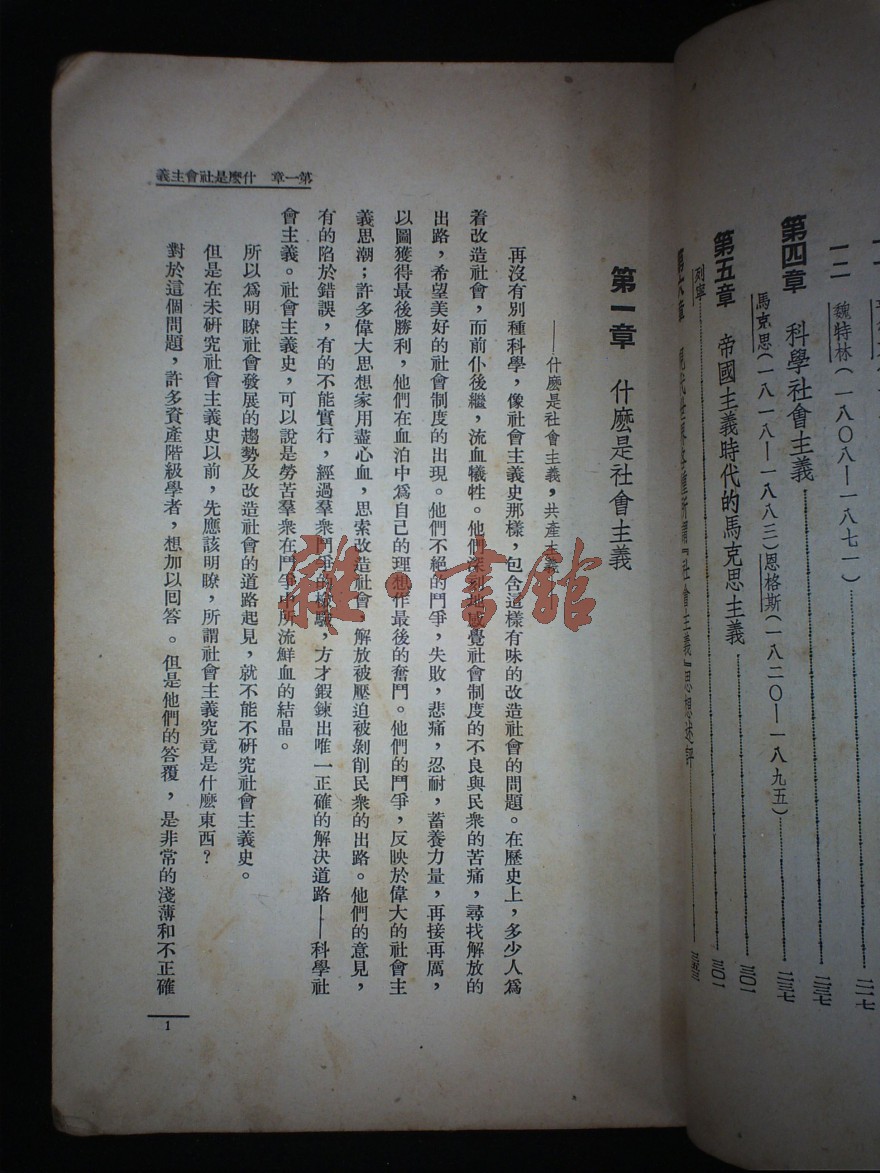 一二 魏特林(一八〇八—一八七一)……二二七
第四章 科學社會主義……二三七
馬克思(一八一八—一八八三)恩格斯(一八二〇—一八九五)……二三七
第五章 帝國主義時代的馬克思主義……三〇一
列寧……三〇一
第六章 現代世界各種所謂『社會主義』思想述評
第一章 什麼是社會主義
第一章 什麼是社會主義
——什麼是社會主義,共產主義——
再沒有別種科學,像社會主義史那樣,包含這樣有味的改造社會的問題。在歷史上,多少人爲
着改造社會,而前仆後繼,流血犧牲。他們深刻地感覺社會制度的不良與民衆的苦痛,尋找解放的
出路,希望美好的社會制度的出現。他們不絕的鬥爭,失敗,悲痛,忍耐,蓄養力量,再接再厲,
以圖獲得最後勝利,他們在血泊中爲自己的理想作最後的奮鬥。他們的鬥爭,反映於偉大的社會主
義思潮;許多偉大思想家用盡心血,思索改造社會,解放被壓迫被剝削民衆的出路。他們的意見,
有的陷於錯誤,有的不能實行,經過羣衆鬥爭的檢驗,方才鍜鍊出唯一正確的解決道路——科學社
會主義。社會主義史,可以說是勞苦羣衆在鬥爭中所流鮮血的結晶。
所以爲明瞭社會發展的趨勢及改造社會的道路起見,就不能不研究社會主義史。
但是在未研究社會主義史以前,先應該明瞭,所謂社會主義究竟是什麼東西?
對於這個問題,許多資產階級學者,想加以回答。但是他們的答覆,是非常的淺薄和不正確
1
雜·書館